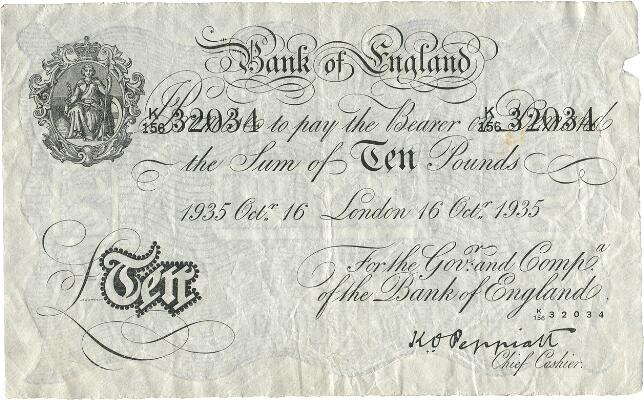 Bank of England
K/156 32034 K/156 32034
Promise to pay the Bearer on Demand
the Sum of Ten Pounds
1935 Octr. 16 London 16 Octr. 1935
For the Govr. and Compa.
of the Bank of England.
£Ten
K/156 32034
K.O. Peppiatt
Chief Cashier.